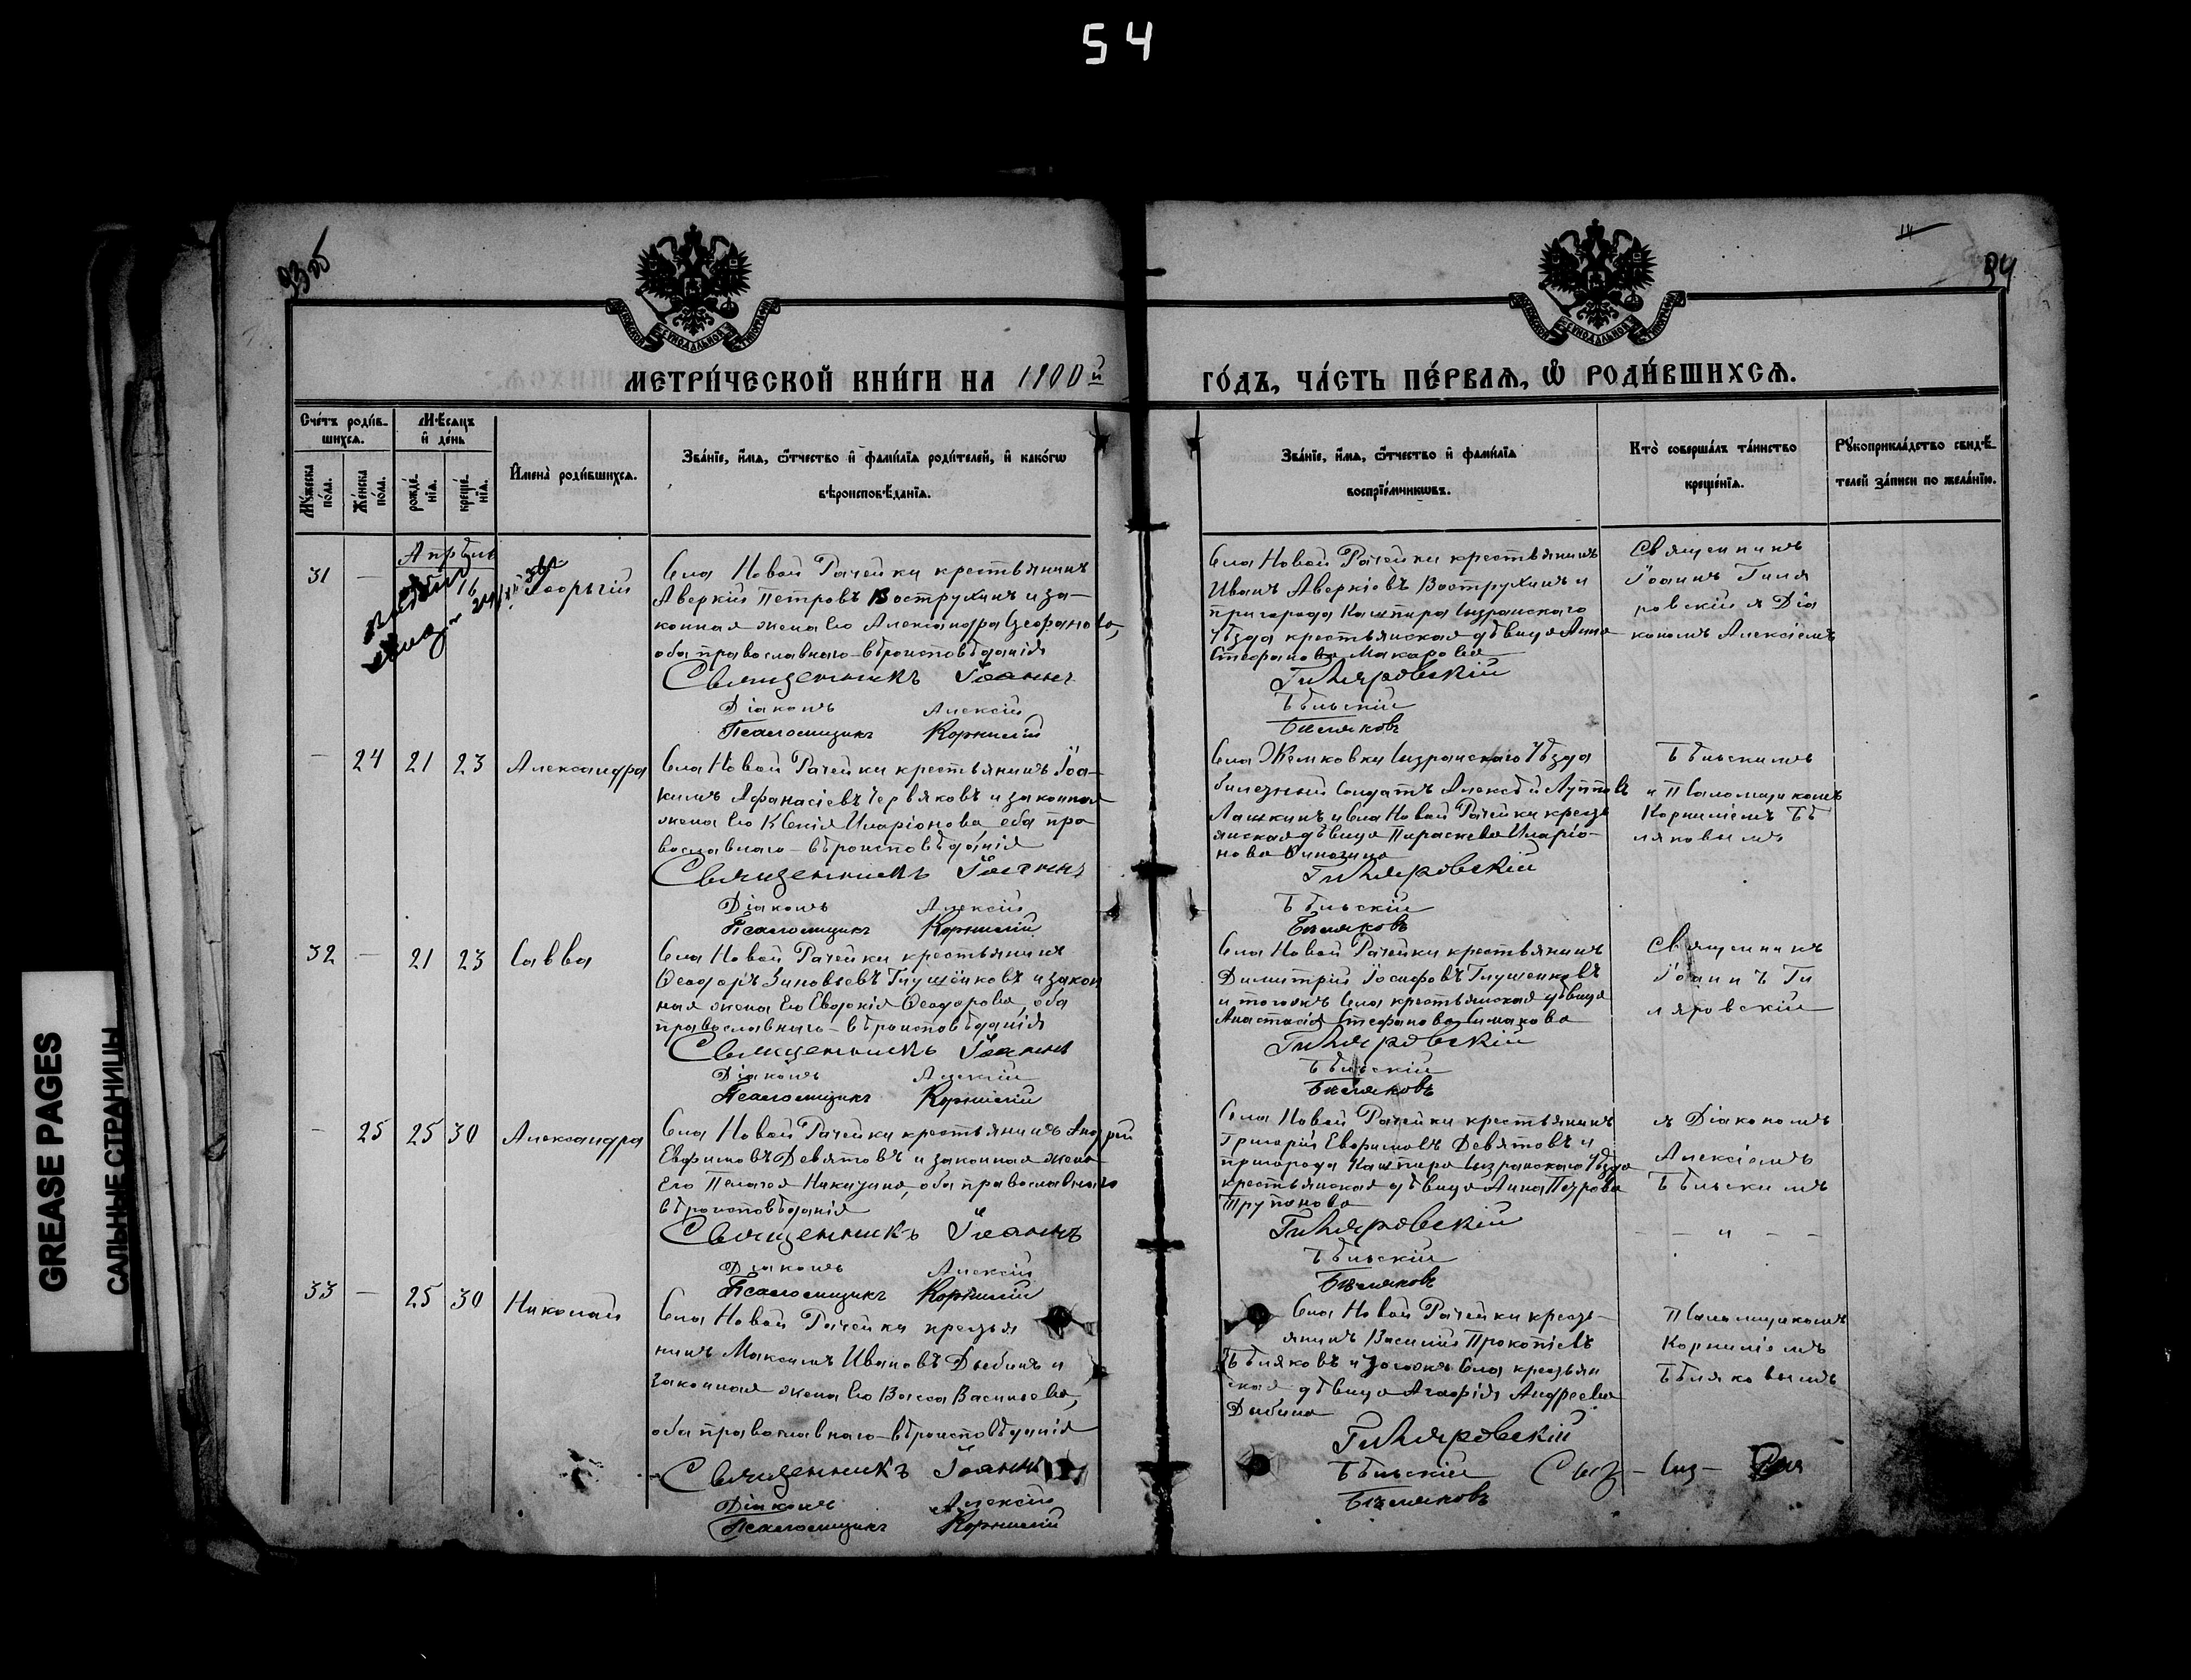 54
93 об
94
МЕТРИ́ЧЕСКОЙ КНИ́ГИ НА 1900й
ГО́ДЪ, ЧА́СТЬ ПЕ́РВАѦ, Ѡ҆ РОДИ́ВШИХСѦ.
Сче́тъ роди́в-
шихсѧ.
Мꙋ́жеска
по́ла.
Же́нска
по́ла.
Мѣ́сѧцъ
и҆ де́нь
рожде́-
нїѧ.
креще́-
нїѧ.
И҆мена̀ роди́вшихсѧ.
Зва́нїе, и҆́мѧ, ѻ҆́тчество и҆ фами́лїѧ роди́телей, и҆ како́гѡ
вѣроисповѣ́данїѧ.
Зва́нїе, и҆́мѧ, ѻ҆́тчество и҆ фами́лїѧ
воспрїе́мникѡвъ.
Кто̀ соверша́лъ та́инство
креще́нїѧ.
Рꙋкоприкла́дство свидѣ́-
телей за́писи по жела́нїю.
Апрѣль
31 — 16 Георгій
Села Новой Рачейки крестьянинъ
Аверкій Петровъ Вострухинъ и за-
конная жена его Александра Стефанова,
оба православнаго вѣроисповѣданія
Священникъ Іоаннъ
Діаконъ Алексій
Псаломщикъ Корнилій
Села Новой Рачейки крестьянинъ
Иванъ Аверкіевъ Вострухинъ и
пригорода Кашпира Сызранскаго
Уѣзда крестьянская дѣвица Анна
Стефанова Макарова
Гиляровскій
Бѣльскій
Бѣляковъ
Священникъ
Іоаннъ Гиля
ровскій я Діа
кономъ Алексіемъ
— 24 21 23 Александра
Села Новой Рачейки крестьянинъ Іоа-
кимъ Афанасіевъ Червяковъ и законная
жена его Ксенія Иларіонова, оба пра
вославнаго вѣроисповѣданія
Священникъ Іоаннъ
Діаконъ Алексій
Псаломщикъ Корнилій
Села Жемковки Сызранскаго Уѣзда
Лашкинъ и села Новой Рачейки кресть
янская дѣвица Параскева Иларіо-
нова
Гиляровскій
Бѣльскій
Бѣляковъ
Бѣльскимъ
и Псаломщикомъ
Корниліемъ Бѣ
ляковымъ
32 — 21 23 Савва
Села Новой Рачейки крестьянинъ
Ѳеодоръ Зиновьевъ Глушенковъ и закон
ная жена его Евдокія Ѳеодорова, оба
православнаго вѣроисповѣданія
Священникъ Іоаннъ
Діаконъ Алексій
Псаломщикъ Корнилій
Села Новой Рачейки крестьянинъ
Димитрій Іосифовъ Глушенковъ
и тогожъ села крестьянская дѣвица
Анастасія Стефанова Симакова
Гиляровскій
Бѣльскій
Бѣляковъ
Священникъ
Іоаннъ Ги
ляровскій
— 25 25 30 Александра
Села Новой Рачейки крестьянинъ Андрей
Евфимовъ Девятовъ и законная жена
его Пелагея Никитина, оба православнаго
вѣроисповѣданія
Священникъ Іоаннъ
Діаконъ Алексій
Псаломщикъ Корнилій
Села Новой Рачейки крестьянинъ
Григорій Евфимовъ Девятовъ и
пригорода Кашпира Сызранскаго Уѣзда
крестьянская дѣвица Анна Петрова
Гиляровскій
Бѣльскій
Бѣляковъ
я Діакономъ
Алексіемъ
Бѣльскимъ
— — „ — —
33 — 25 30 Николай
Села Новой Рачейки крестья
нинъ Максимъ Ивановъ Дыбинъ и
законная жена его Васса Васильева,
оба православнаго вѣроисповѣданія
Священникъ Іоаннъ
Діаконъ Алексій
Псаломщикъ Корнилій
Села Новой Рачейки кресть-
янинъ Василій Прокопіевъ
Бѣляковъ и тогожъ села крестьян
ская дѣвица Агафія Андреева
Дыбина
Гиляровскій
Бѣльскій
Бѣляковъ
Псаломщикомъ
Корниліемъ
Бѣляковымъ
GREASE PAGES
САЛЬНЫЕ СТРАНИЦЫ